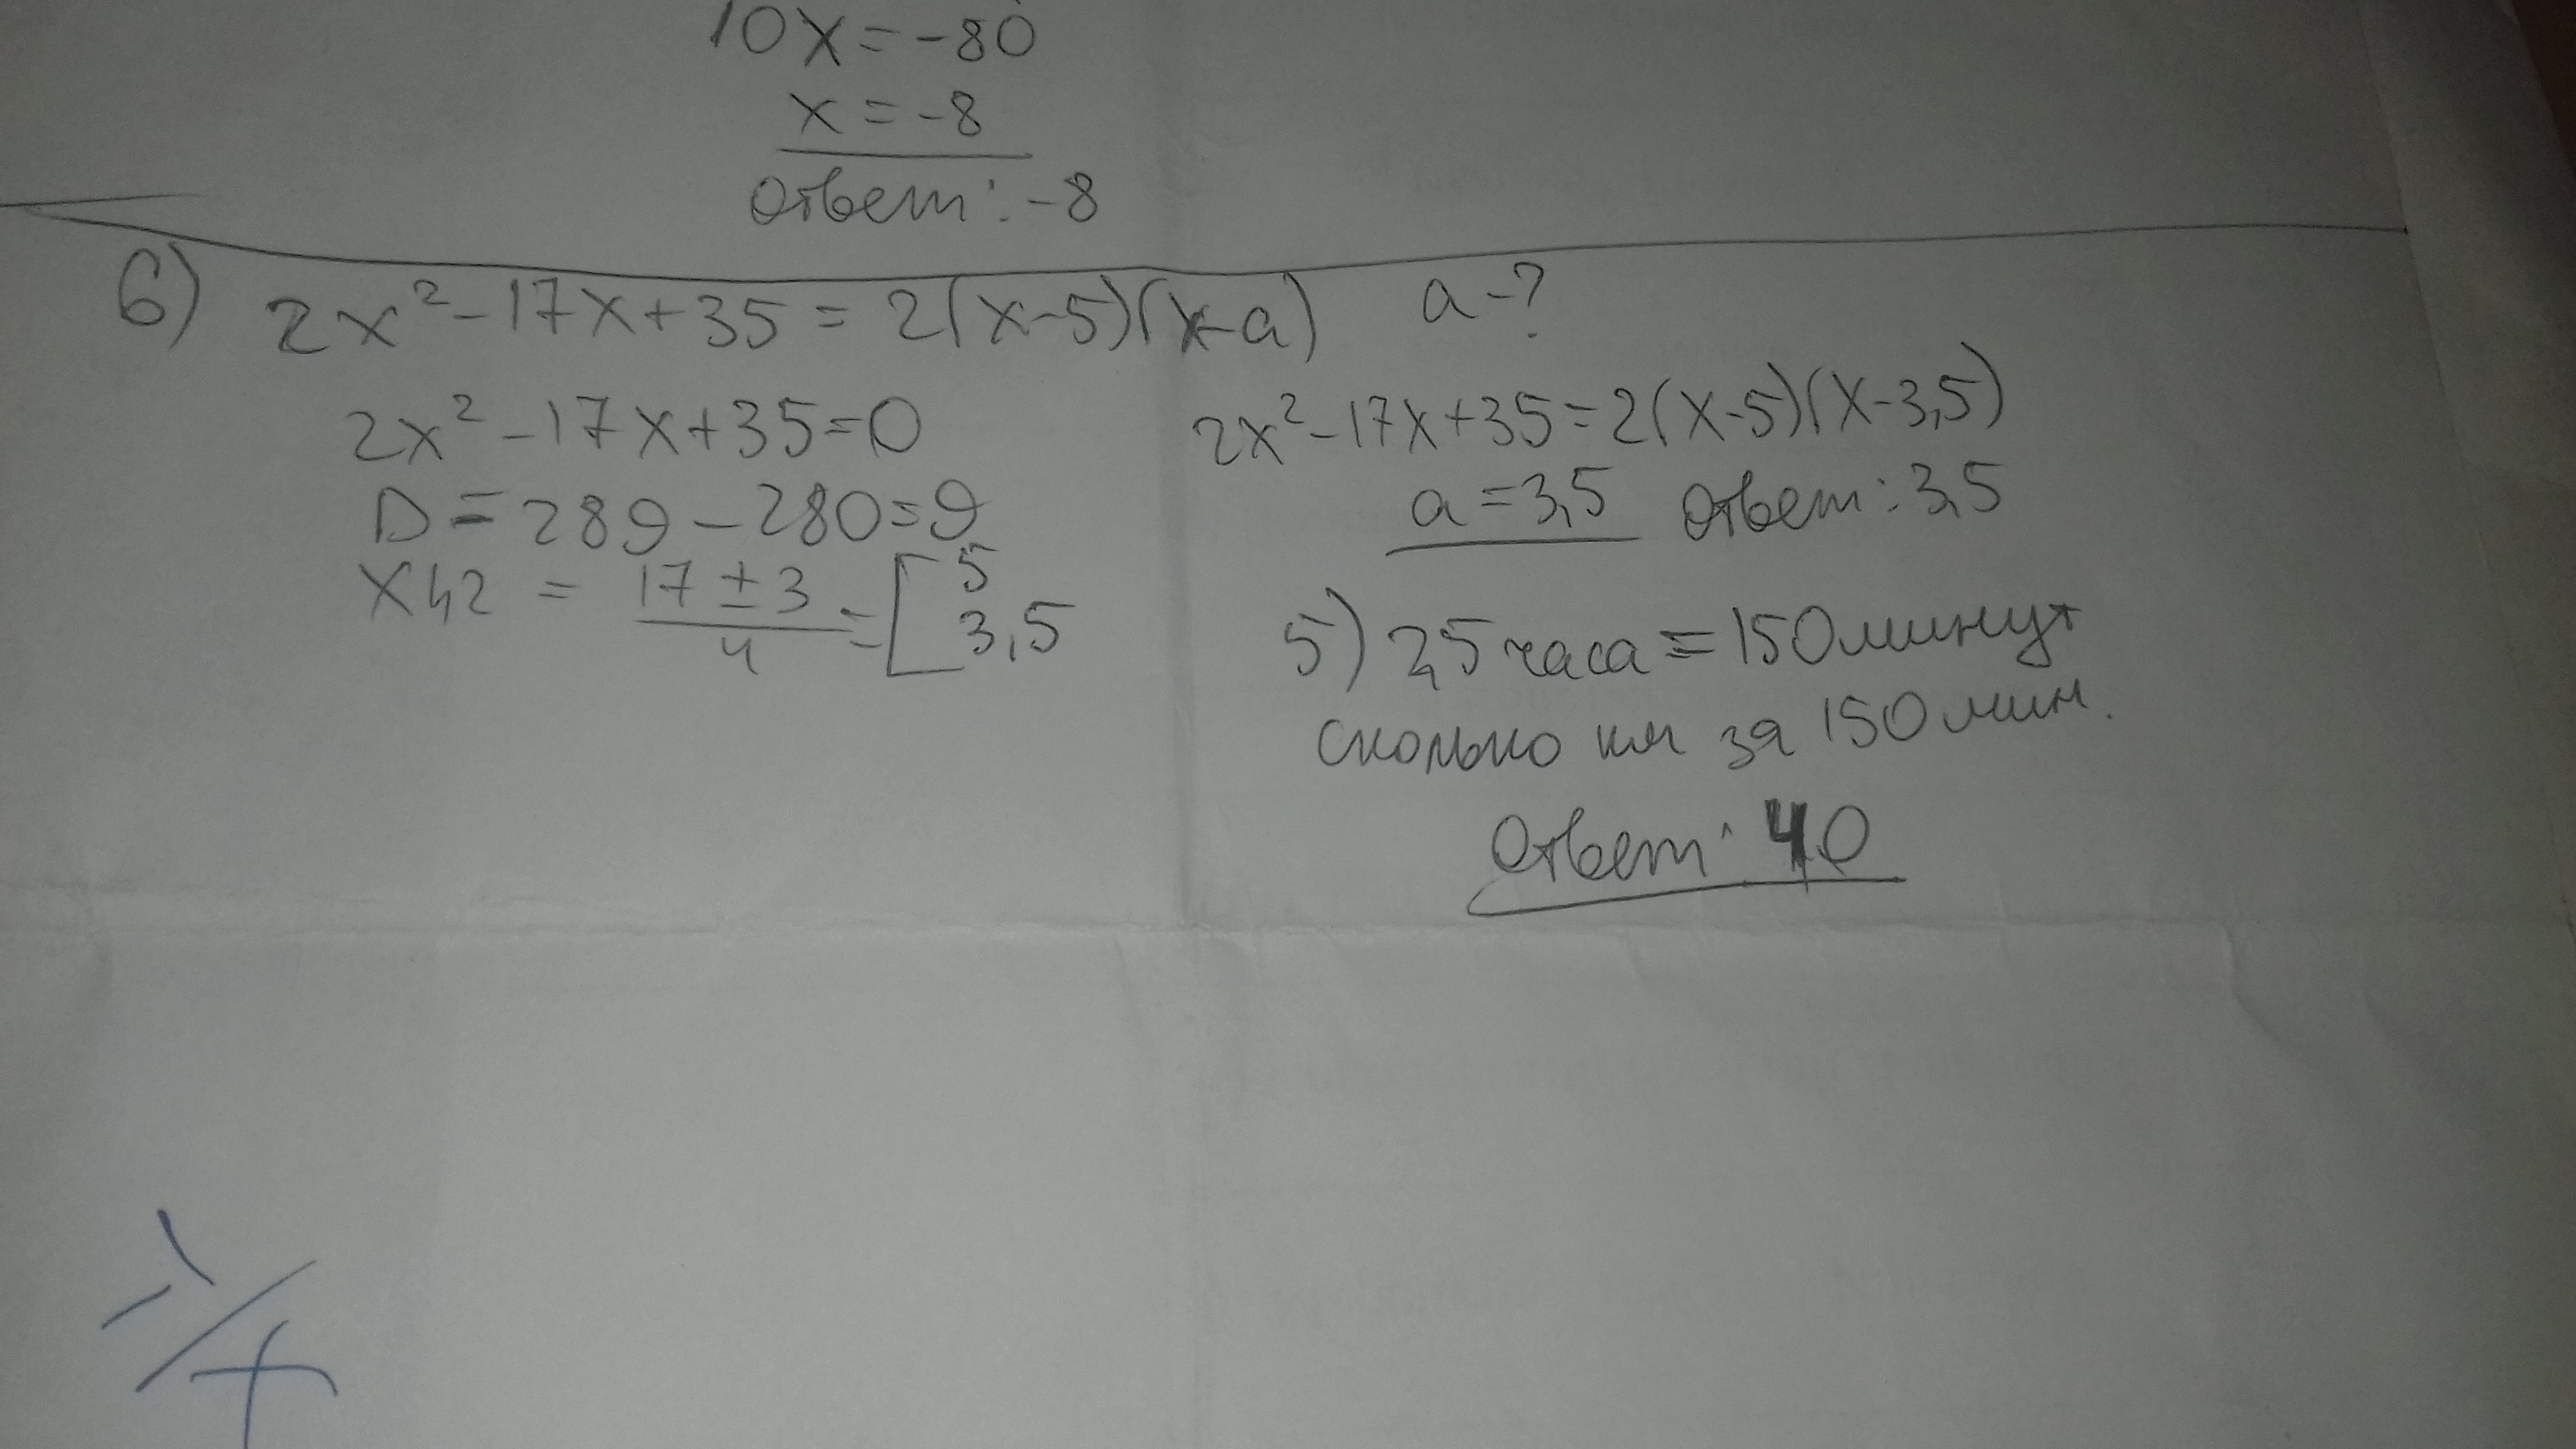 10x=-80
x=-8
Ответ: -8
6) 2x²-17x+35=2(x-5)(x-a) a-?
2x²-17x+35=0
D=289-280=9
x1,2 = 17±3/4 = [5 3,5
2x²-17x+35=2(x-5)(x-3,5)
a=3,5 Ответ: 3,5
5) 2,5 часа = 150 минут
сколько км за 150 мин.
Ответ: 40